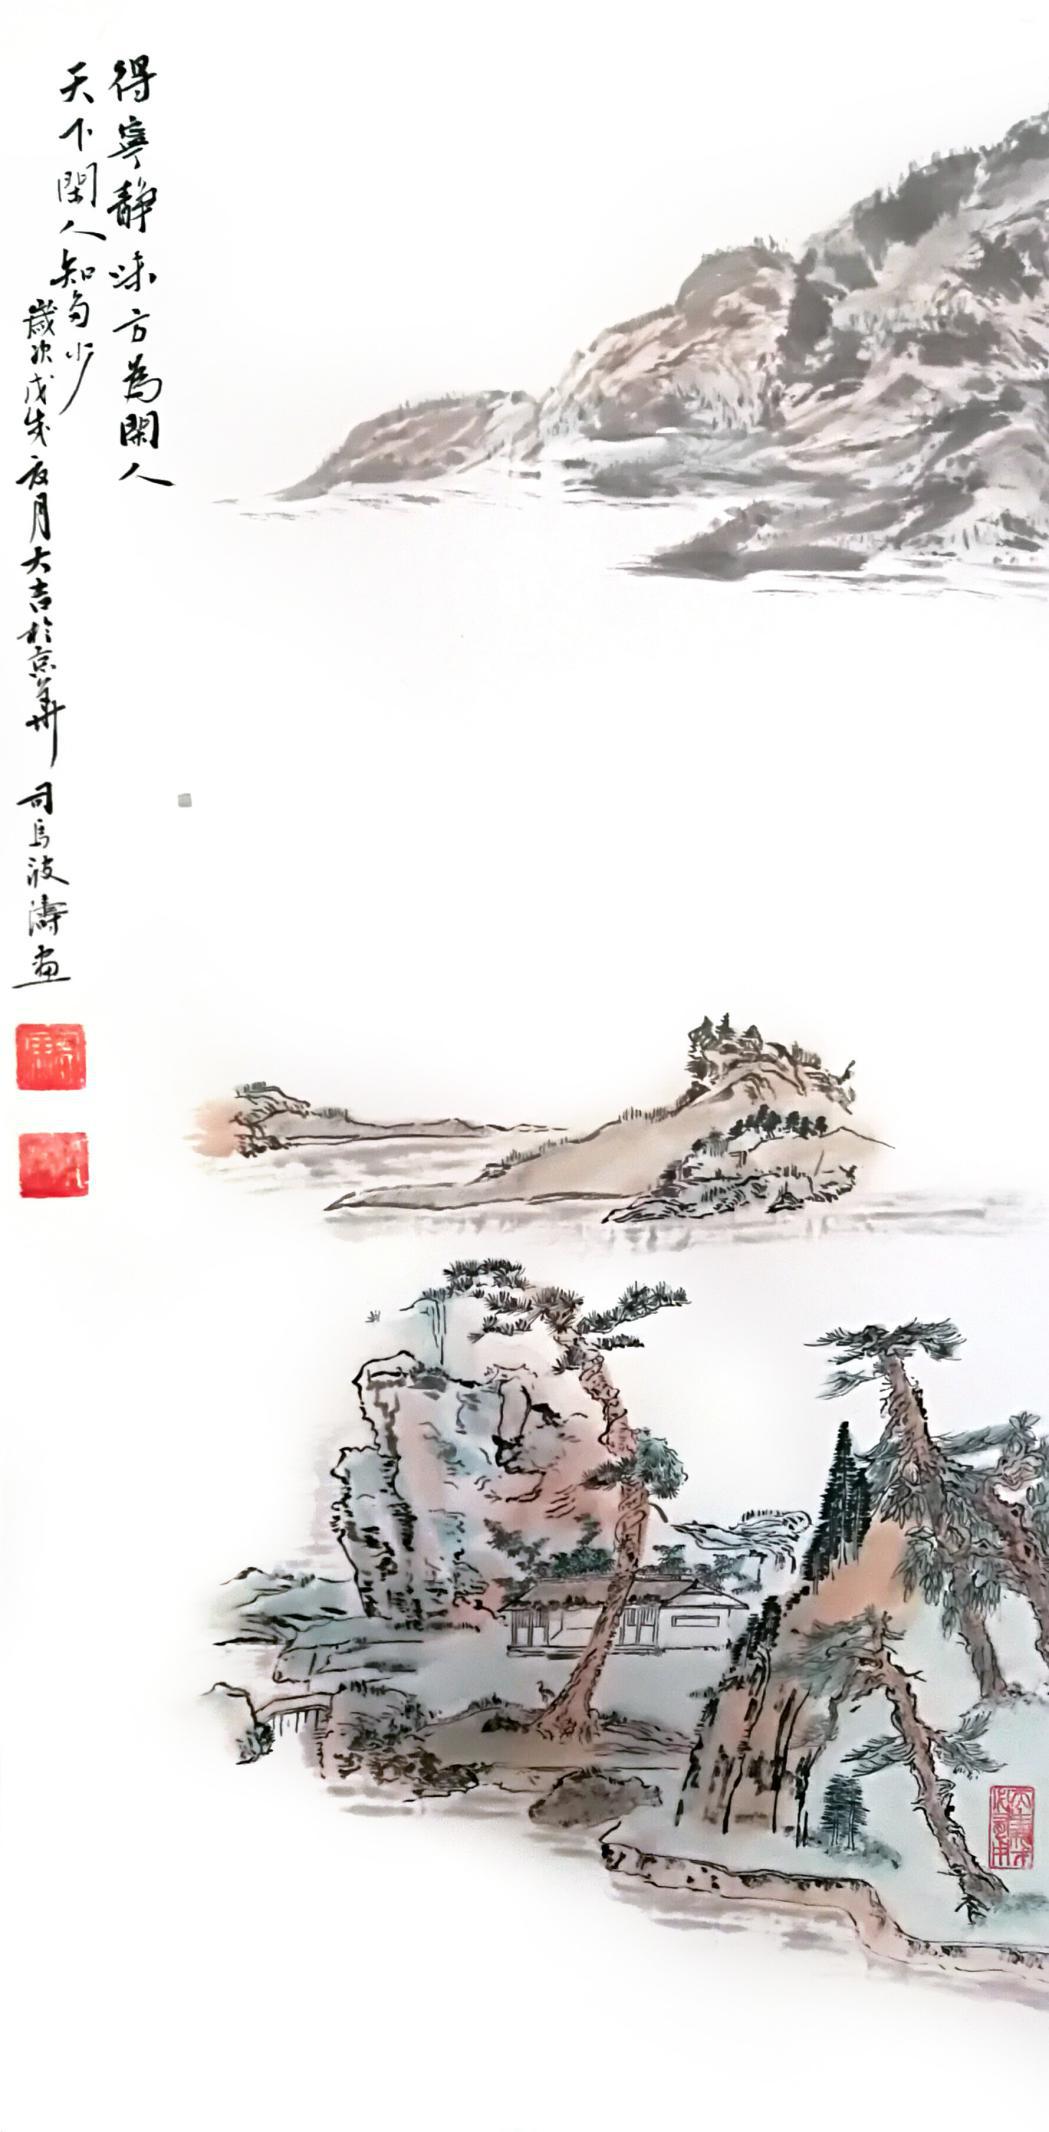 得寧靜味方為閑人
天下閑人知多少
歲次戊戌夜月大吉於京華
司馬波濤畫